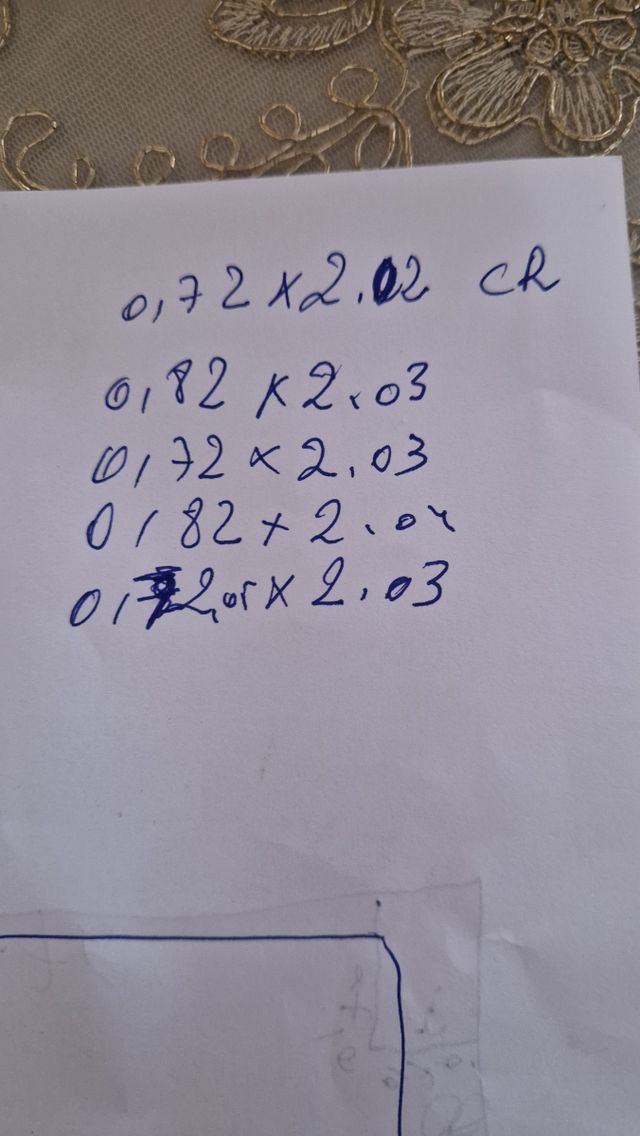 0,72 x 2.02 ch
0,82 x 2.03
0,72 x 2.03
0,82 x 2.04
x 2.03